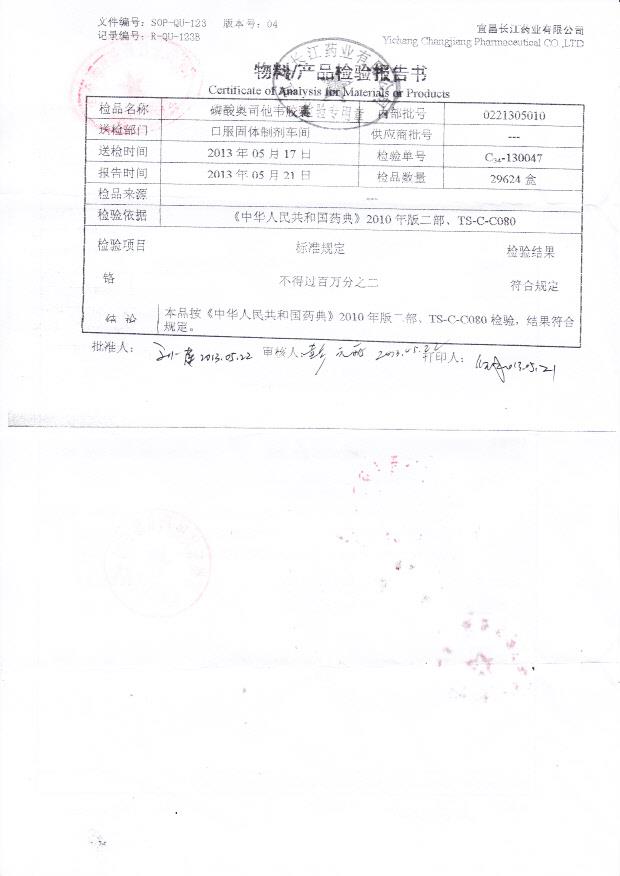 文件编号：SOP-QU-123 版本号：04
记录编号：R-QU-123B
宜昌长江药业有限公司
Yichang Changjiang Pharmaceutical CO.,LTD
物料/产品检验报告书
Certificate of Analysis for Materials or Products
长江药业有限公司
检验专用章
检品名称 磷酸奥司他韦胶囊 内部批号 0221305010
送检部门 口服固体制剂车间 供应商批号 ---
送检时间 2013 年 05 月 17 日 检验单号 C34-130047
报告时间 2013 年 05 月 21 日 检品数量 29624 盒
检品来源 ---
检验依据 《中华人民共和国药典》2010 年版二部、TS-C-C080
检验项目 标准规定 检验结果
铬 不得过百万分之二 符合规定
结 论 本品按《中华人民共和国药典》2010 年版二部、TS-C-C080 检验，结果符合
规定。
批准人： 2013.05.22 审核人： 2013.05.22 打印人： 2013.05.21